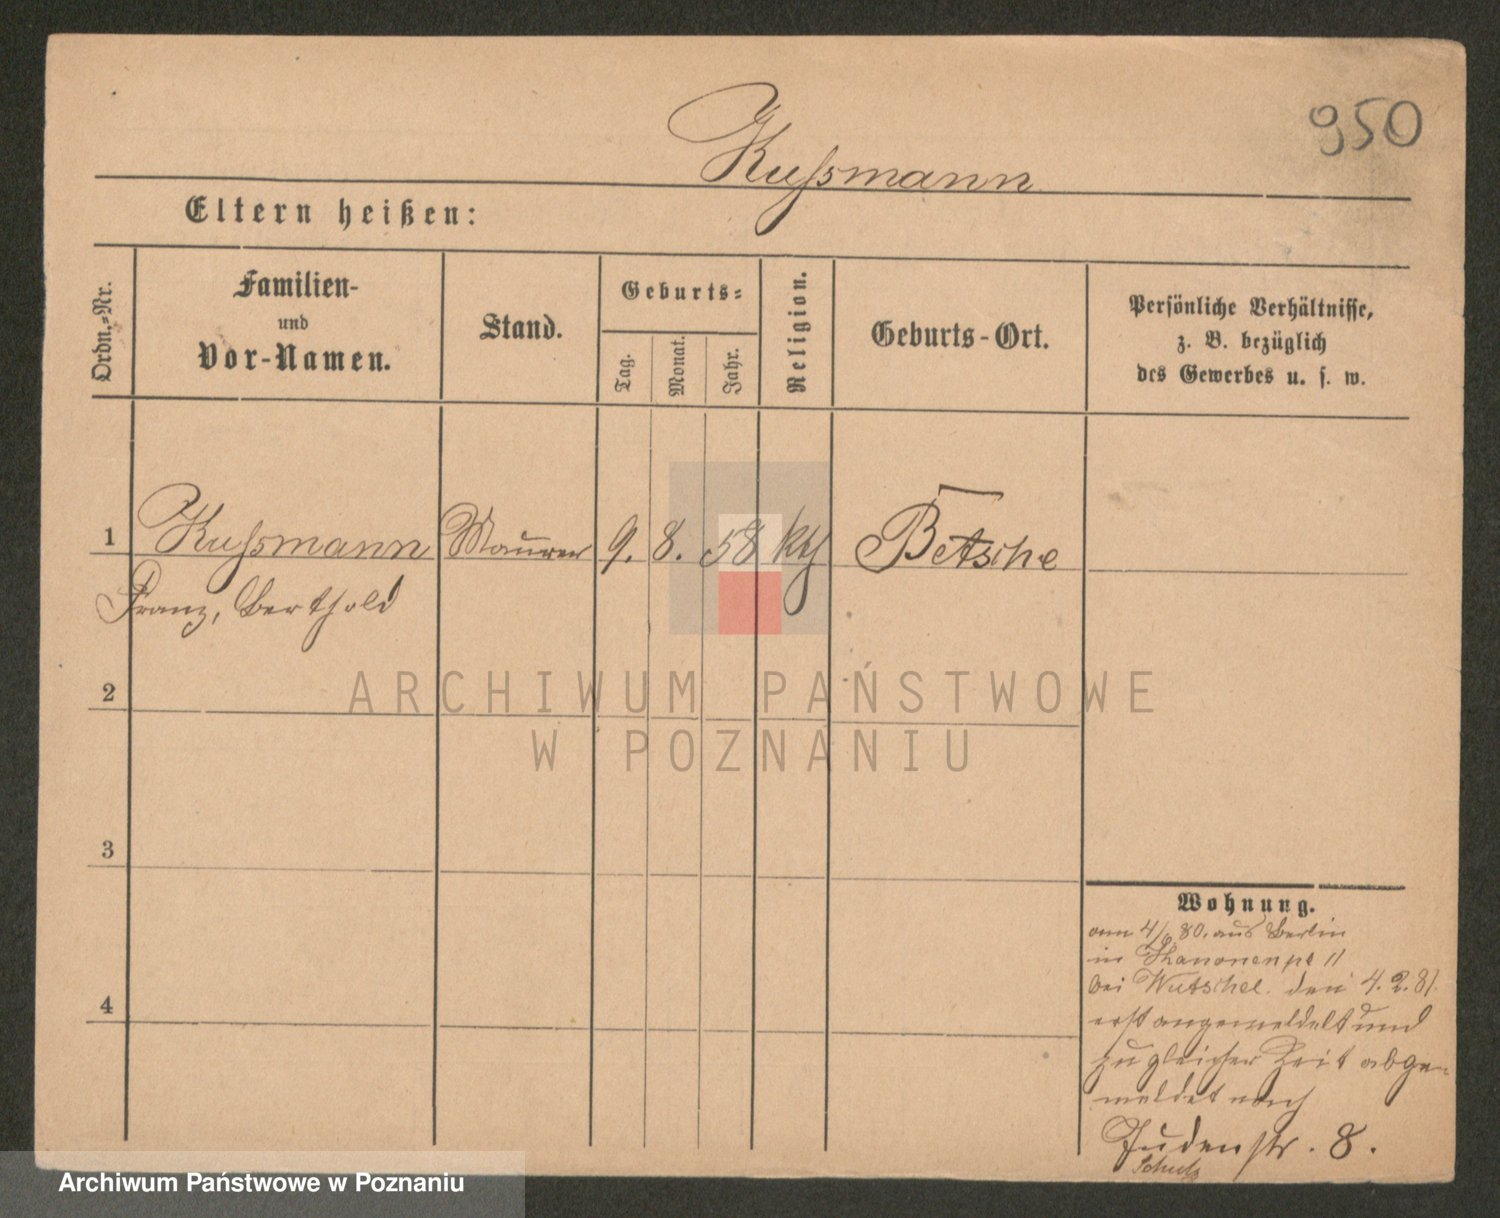 950
Kußmann
Eltern heißen:
Ordn.-Nr.
Familien-
und
Vor-Namen.
Stand.
Geburts-
Tag.
Monat.
Jahr.
Religion.
Geburts-Ort.
Persönliche Verhältnisse,
z. B. bezüglich
des Gewerbes u. s. w.
1 Kußmann Maurer 9. 8. 58 kth Betsche
Franz, Berthold
2
ARCHIWUM PAŃSTWOWE
W POZNANIU
3
4
Wohnung.
am 4/ 80. aus Berlin
in Kanonenpl 11
bei Wutschel. den 4. 2. 81.
erst angemeldet und
zu gleicher Zeit abge-
meldet nach
Judenstr. 8.
Schulz
Archiwum Państwowe w Poznaniu